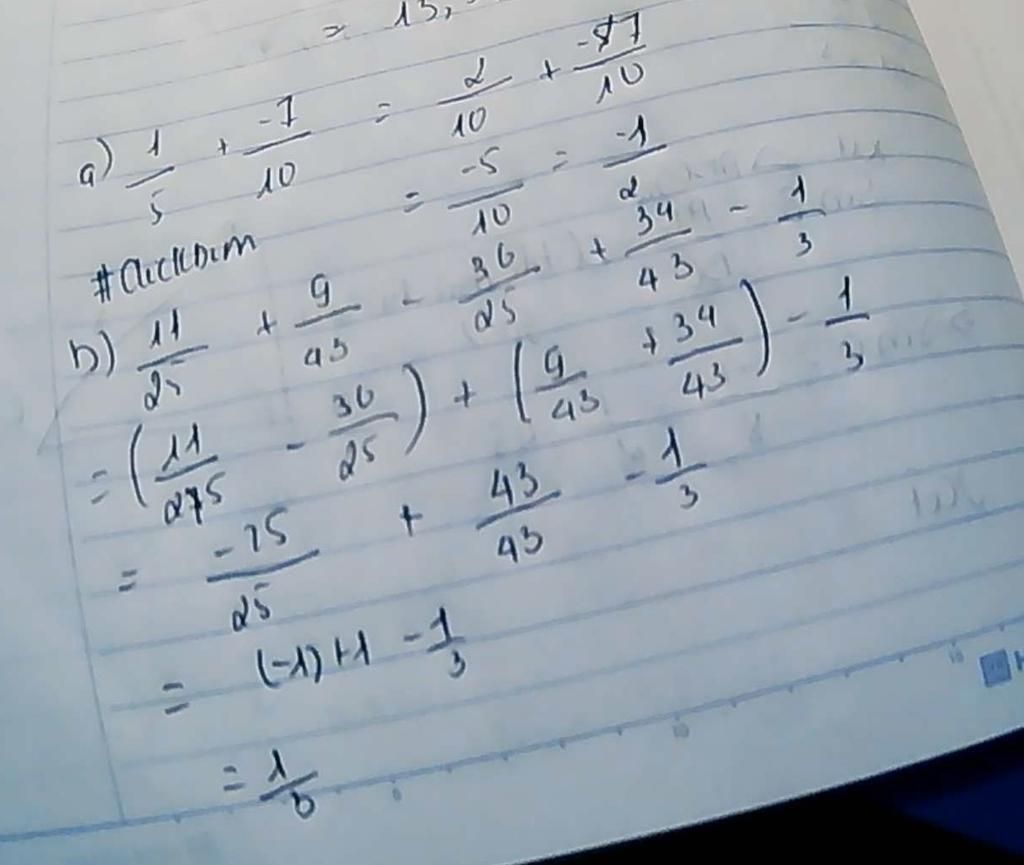 = 13,
a) 1/5 + -7/10 = 2/10 + -7/10
= -5/10 = -1/2
#ClickDim
b) 11/25 + 9/43 - 36/25 + 34/43 - 1/3
= (11/25 - 36/25) + (9/43 + 34/43) - 1/3
= -25/25 + 43/43 - 1/3
= (-1) + 1 - 1/3
= 1/3